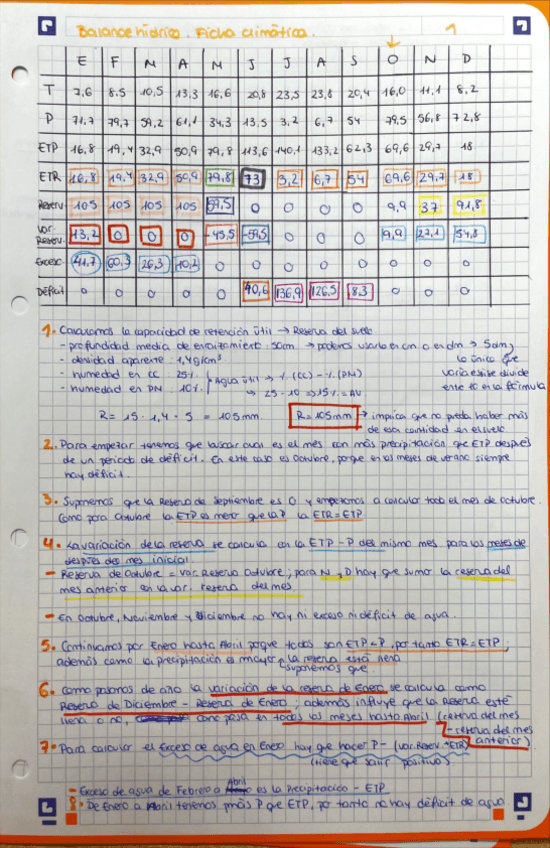 Balance hídrico. Ficha climática. 1
E F M A M J J A S O N D
T 7,6 8,5 10,5 13,3 16,6 20,8 23,5 23,8 20,4 16,0 11,1 8,2
P 71,7 79,7 59,2 61,1 34,3 13,5 3,2 6,7 54 79,5 56,8 72,8
ETP 16,8 19,4 32,9 50,9 79,8 113,6 140,1 133,2 62,3 69,6 29,7 18
ETR 16,8 19,4 32,9 50,9 79,8 73 3,2 6,7 54 69,6 29,7 18
Reserv. 105 105 105 105 59,5 0 0 0 0 9,9 37 91,8
Var Reserv. 13,2 0 0 0 -45,5 -59,5 0 0 0 9,9 27,1 54,8
Exceso 41,7 60,3 26,3 10,2 0 0 0 0 0 0 0 0
Déficit 0 0 0 0 0 40,6 136,9 126,5 8,3 0 0 0
1. Calculamos la capacidad de retención útil → Reserva del suelo
- profundidad media de enraizamiento: 50cm → podemos usarlo en cm o en dm → 5dm
- densidad aparente: 1,4g/cm³
- humedad en CC: 25%
- humedad en PM: 10%
Agua útil → % (CC) - % (PM)
→ 25 - 10 => 15% = AU
lo único que varía es si se divide entre 10 en la fórmula
R = 15 · 1,4 · 5 = 105mm
R = 105mm → implica que no puede haber más de esa cantidad en el suelo
2. Para empezar tenemos que buscar cual es el mes con más precipitación que ETP después
de un periodo de déficit. En este caso es Octubre, porque en los meses de verano siempre
hay déficit.
3. Suponemos que la Reserva de Septiembre es 0 y empezamos a calcular todo el mes de octubre.
Como para Octubre la ETP es menor que la P la ETR = ETP.
4. La variación de la reserva se calcula con la ETP - P del mismo mes para los meses de
después del mes inicial
- Reserva de Octubre = Var. Reserva Octubre; para N y D hay que sumar la reserva del
mes anterior con la var. reserva del mes
- En Octubre, Noviembre y Diciembre no hay ni exceso ni déficit de agua.
5. Continuamos por Enero hasta Abril porque todos son ETP < P, por tanto ETR = ETP;
además como la precipitación es mayor suponemos que la reserva está llena
6. Como pasamos de año la variación de la reserva de Enero se calcula como
Reserva de Diciembre - Reserva de Enero; además influye que la Reserva esté
llena o no, como pasa en todos los meses hasta Abril (reserva del mes
- reserva del mes anterior)
7. Para calcular el Exceso de agua en Enero hay que hacer P - (Var. Reserv. + ETR)
(tiene que salir positivo)
- Exceso de agua de Febrero a Abril es la Precipitación - ETP
8. De Enero a Abril tenemos más P que ETP, por tanto no hay déficit de agua